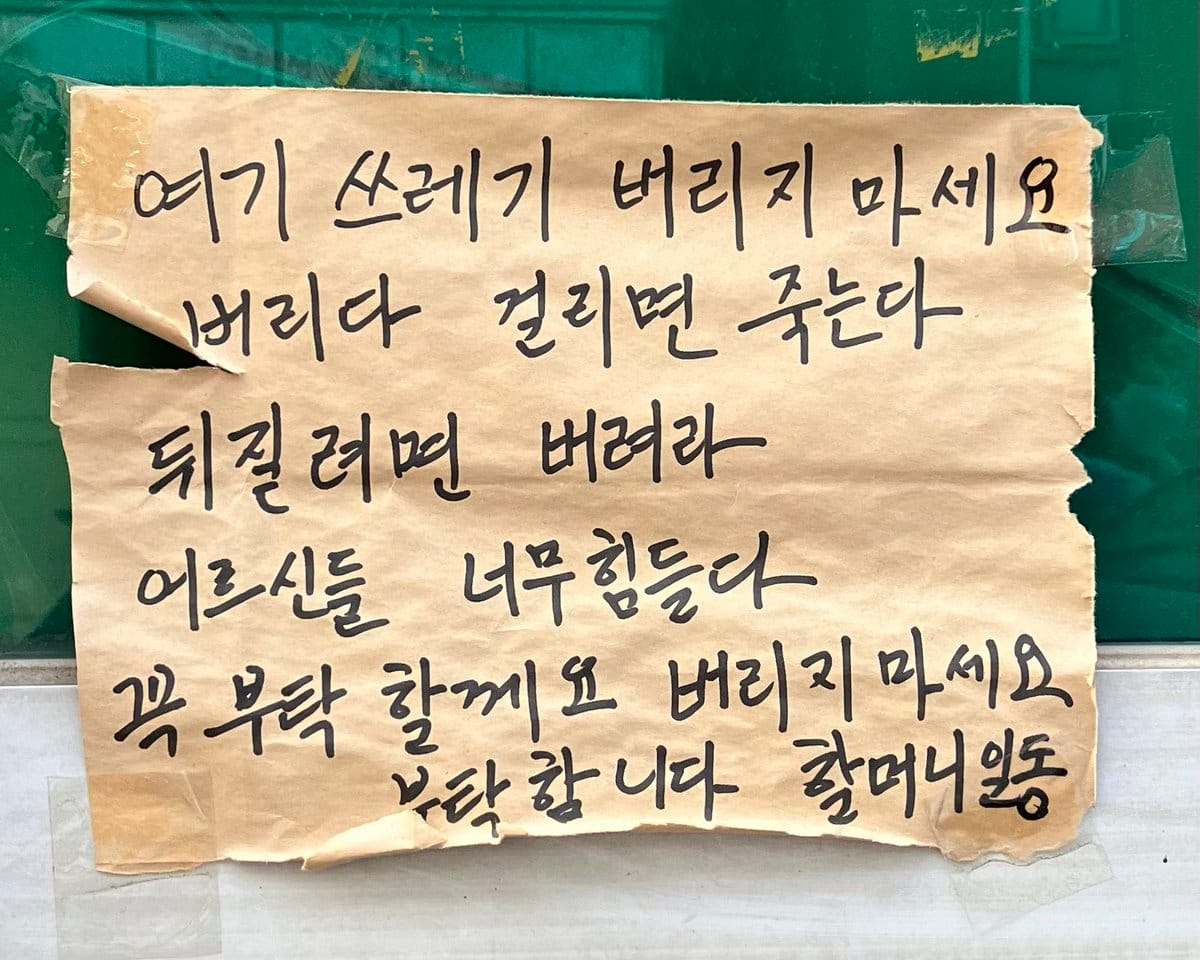 여기 쓰레기 버리지 마세요
버리다 걸리면 죽는다
뒤질려면 버려라
어르신들 너무힘들다
꼭 부탁 할께요 버리지마세요
부탁함니다 할머니일동